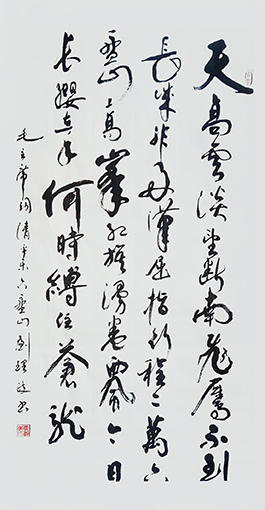 天高雲淡望斷南飛雁不到
長城非好漢屈指行程二萬六
盤山上高峯紅旗漫卷西風今日
長纓在手何時縛住蒼龍
毛主席詞清平樂六盤山劉書